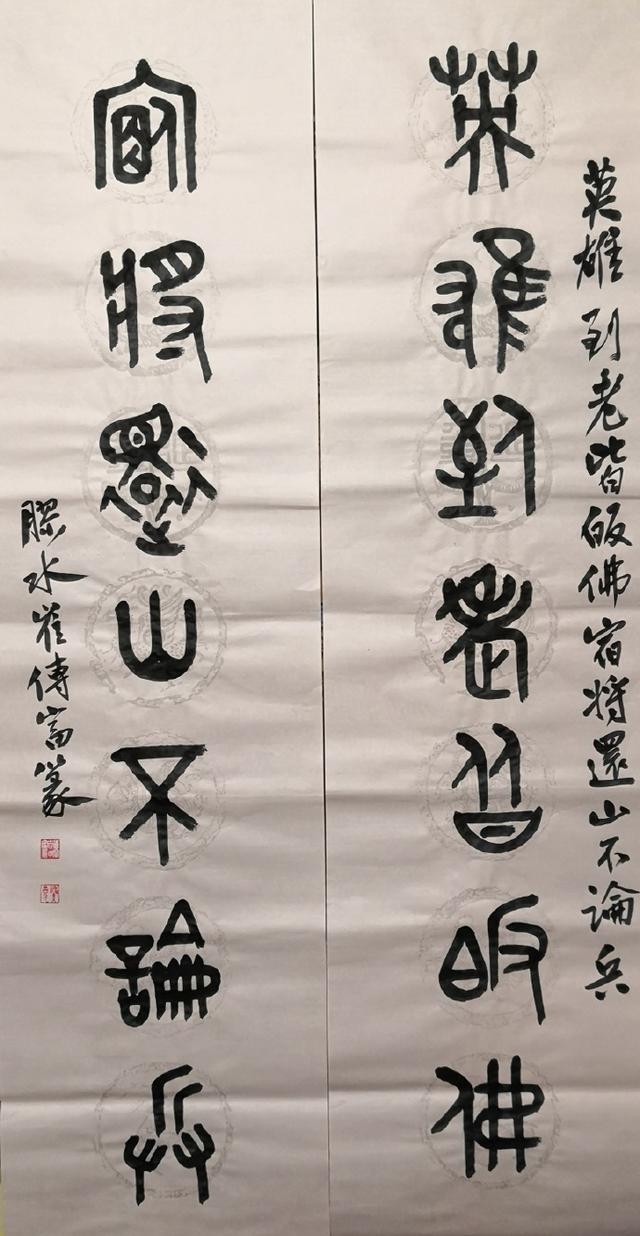 英雄到老皆皈佛宿將還山不論兵
英雄到老皆皈佛
宿將還山不論兵
膠水崔傳富篆